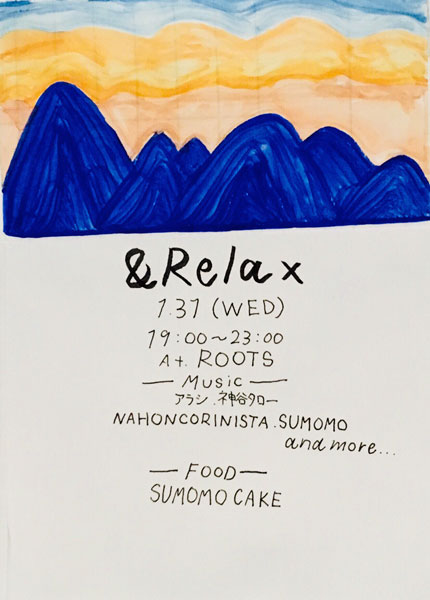 &Relax
1.31 (WED)
19:00〜23:00
At. ROOTS
— Music —
アラシ.神谷タロー
NAHONCORINISTA.SUMOMO
and more...
— FOOD —
SUMOMO CAKE